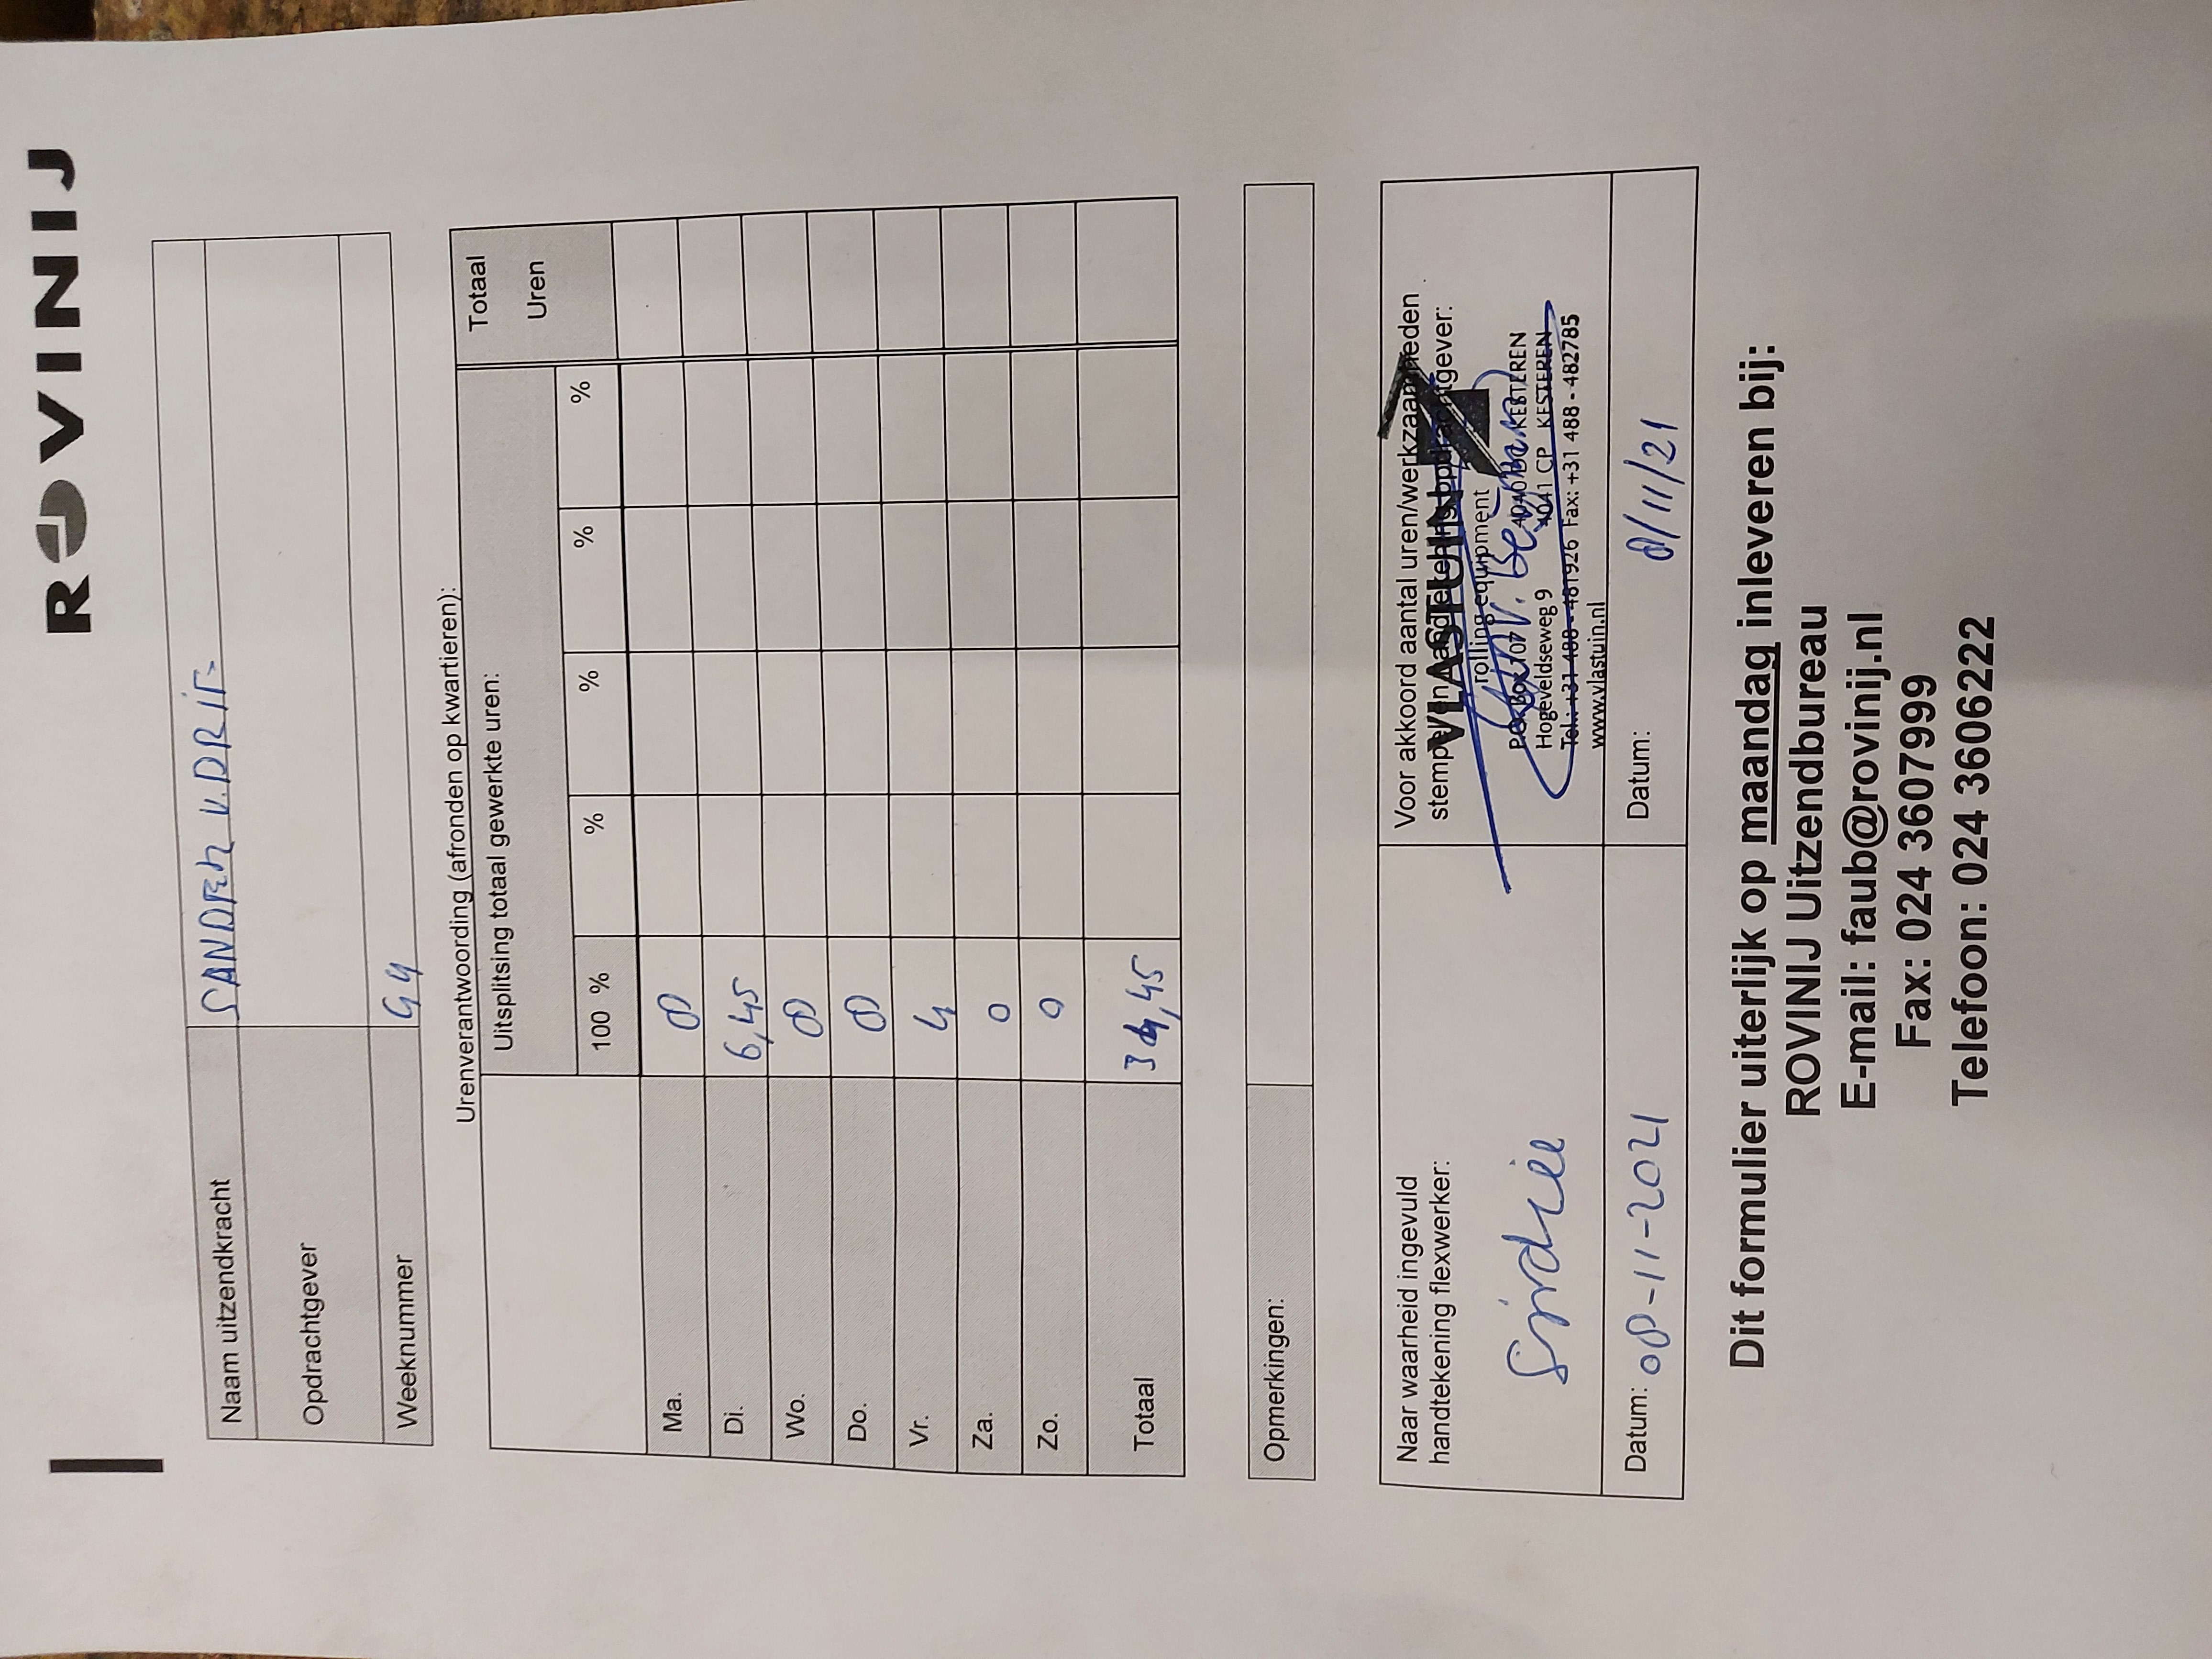 ROVINIJ
Naam uitzendkracht SANDER V.DRIE
Opdrachtgever
Weeknummer 44
Urenverantwoording (afronden op kwartieren):
Uitsplitsing totaal gewerkte uren: Totaal Uren
100 % % % % %
Ma. 8
Di. 6,45
Wo. 8
Do. 8
Vr. 4
Za. 0
Zo. 0
Totaal 34,45
Opmerkingen:
Naar waarheid ingevuld
handtekening flexwerker:
Voor akkoord aantal uren/werkzaamheden
stempel en handtekening opdrachtgever:
VLASTUIN
rolling equipment
P.O. Box 107 4040 DC KESTEREN
Hogeveldseweg 9 4041 CP KESTEREN
Tel.: +31 488 - 481926 Fax: +31 488 - 482785
www.vlastuin.nl
Datum: 08-11-2021
Datum: 8/11/21
Dit formulier uiterlijk op maandag inleveren bij:
ROVINIJ Uitzendbureau
E-mail: faub@rovinij.nl
Fax: 024 3607999
Telefoon: 024 3606222